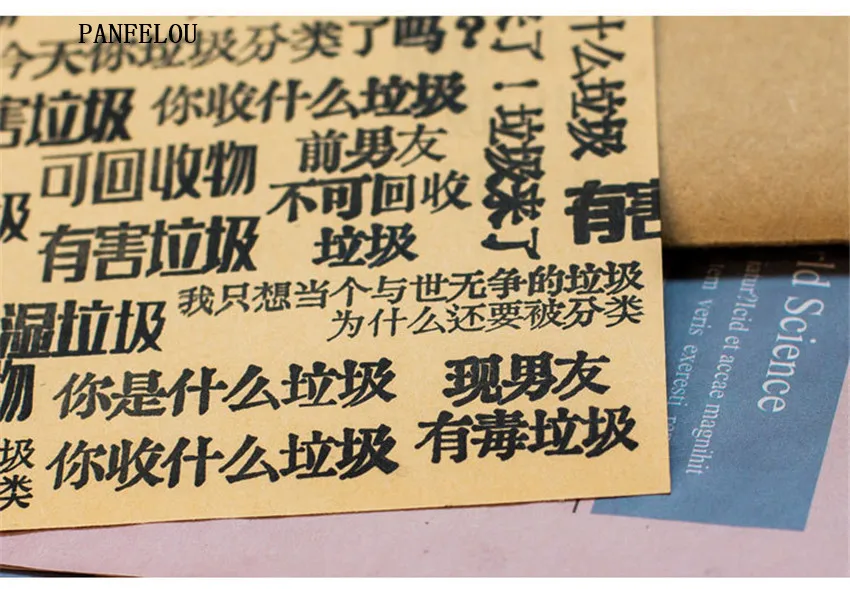 PANFELOU
今天你垃圾分类了吗?
害垃圾
你收什么垃圾
可回收物
前男友
不可回收
垃圾
圾
有害垃圾
我只想当个与世无争的垃圾
为什么还要被分类
湿垃圾
物
你是什么垃圾
现男友
有毒垃圾
圾
类
你收什么垃圾
了！垃圾来了
什么垃圾
有害
rld Science
natur?Icid et accae magnihit
tem veris exeresti